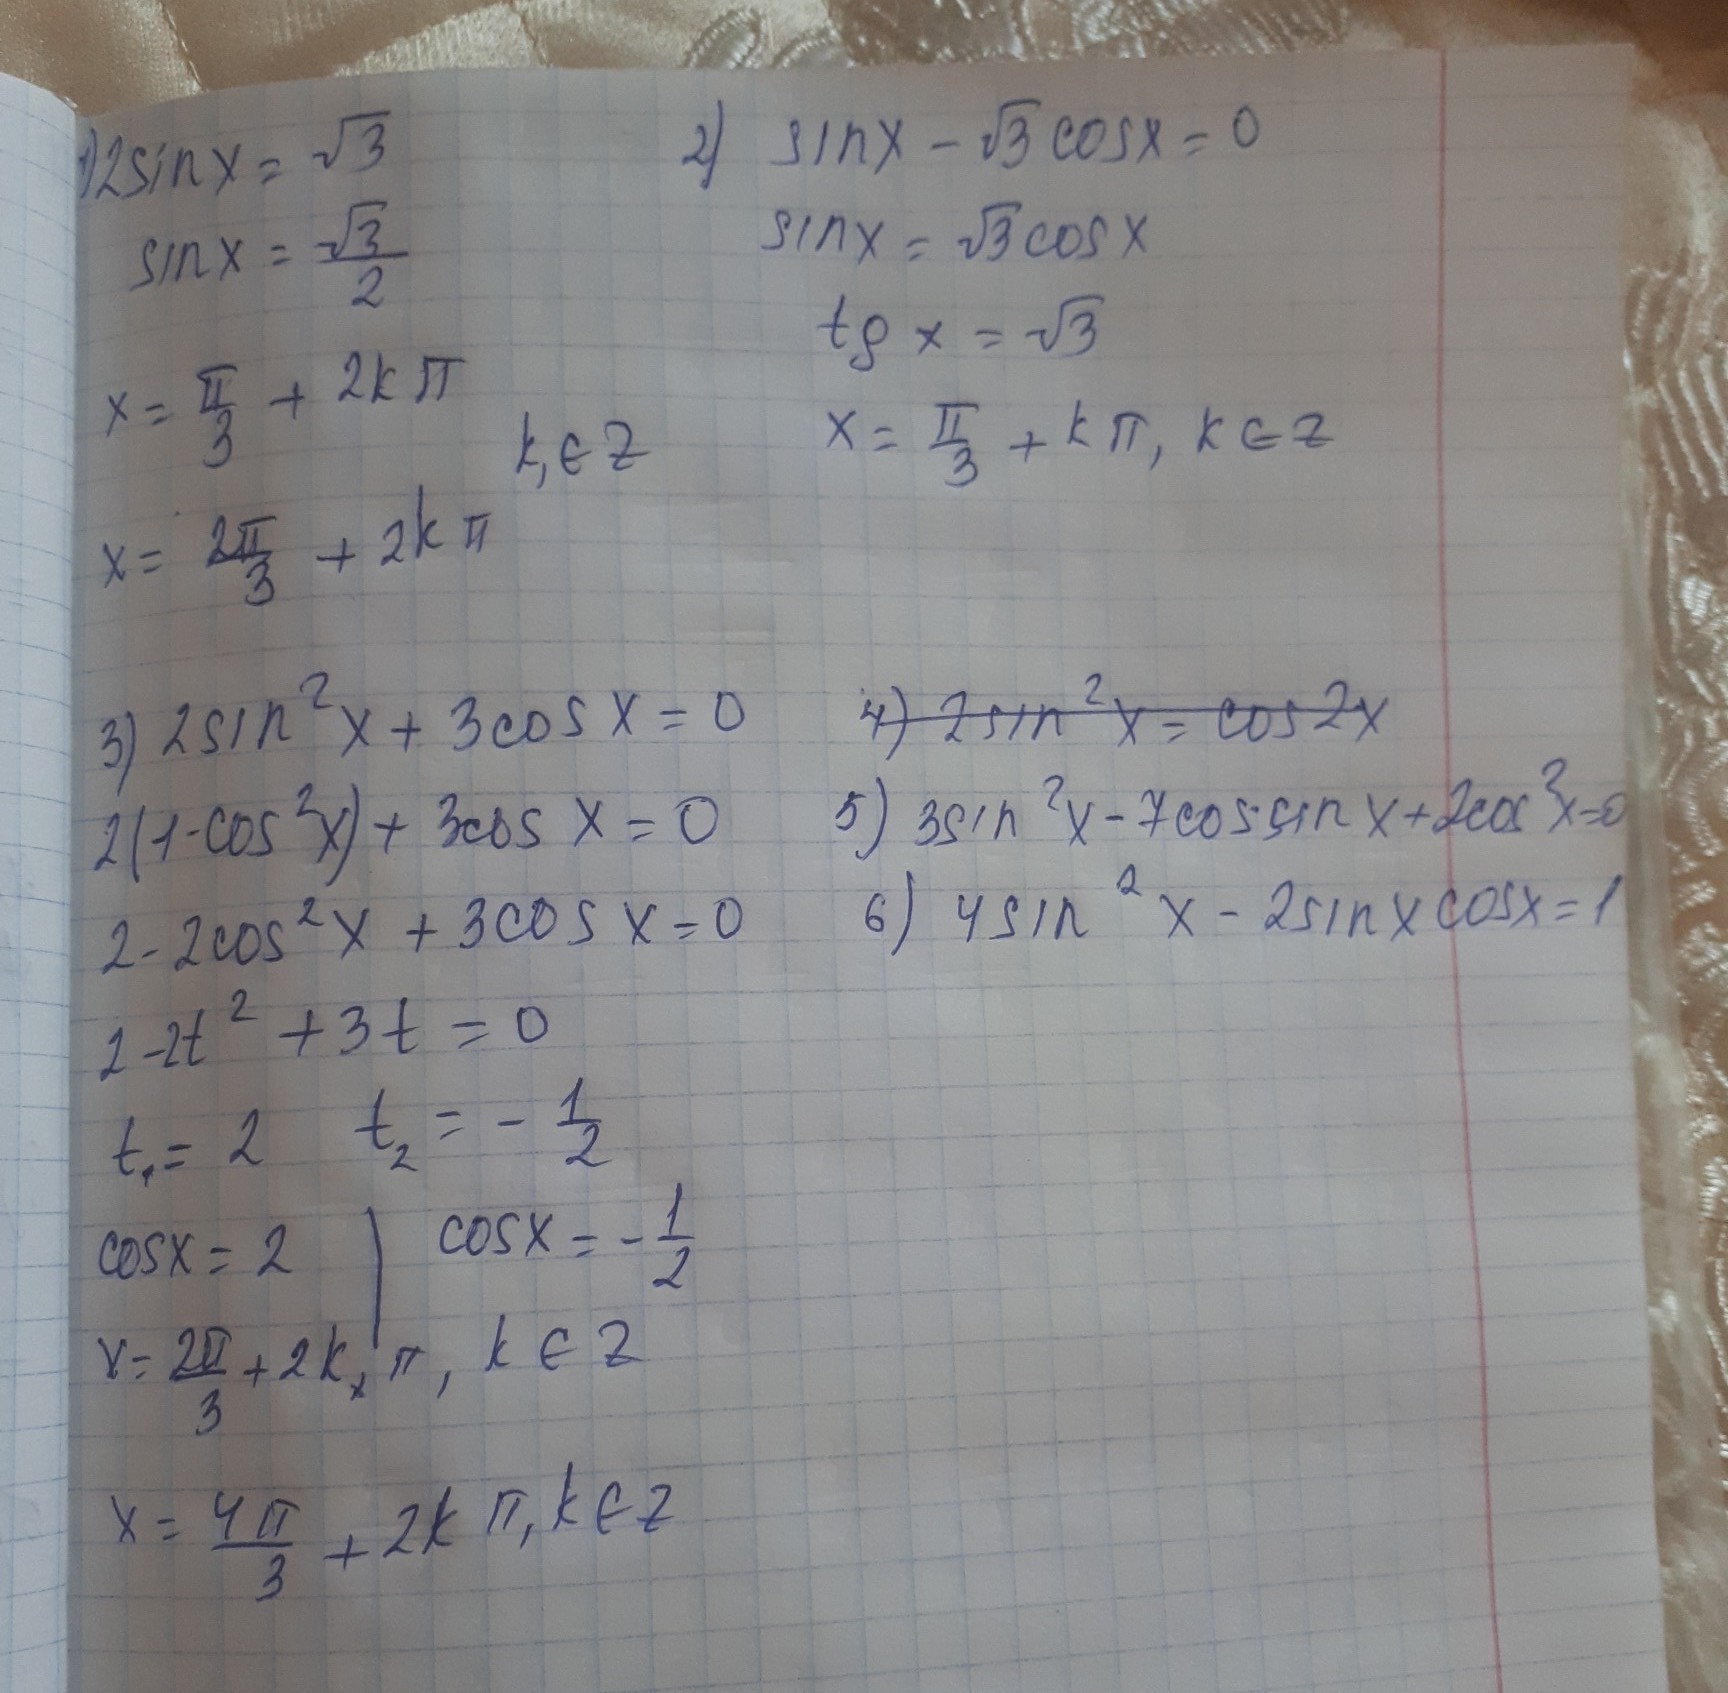 1) 2sinx = √3
sinx = √3/2
x = π/3 + 2kπ
k, ∈ Z
x = 2π/3 + 2kπ
2) sinx - √3cosx = 0
sinx = √3cosx
tg x = √3
x = π/3 + kπ, k ∈ Z
3) 2sin²x + 3cosx = 0
2(1-cos²x) + 3cosx = 0
2-2cos²x + 3cosx = 0
2-2t² + 3t = 0
t₁ = 2 t₂ = -1/2
cosx = 2 | cosx = -1/2
x = 2π/3 + 2kπ, k ∈ Z
x = 4π/3 + 2kπ, k ∈ Z
4) 2sin²x = cos2x
5) 3sin²x - 7cos·sinx + 2cos²x=0
6) 4sin²x - 2sinxcosx = 1